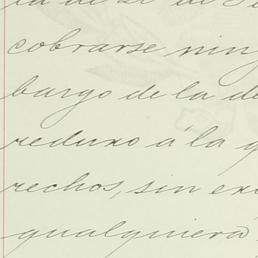 cobrarse nin
bargo de la de
reduxo à la q
rechos, sin ex
qualquiera